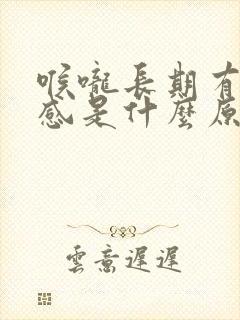 喉嚨長期有
感是什麼原
雲意遲遲